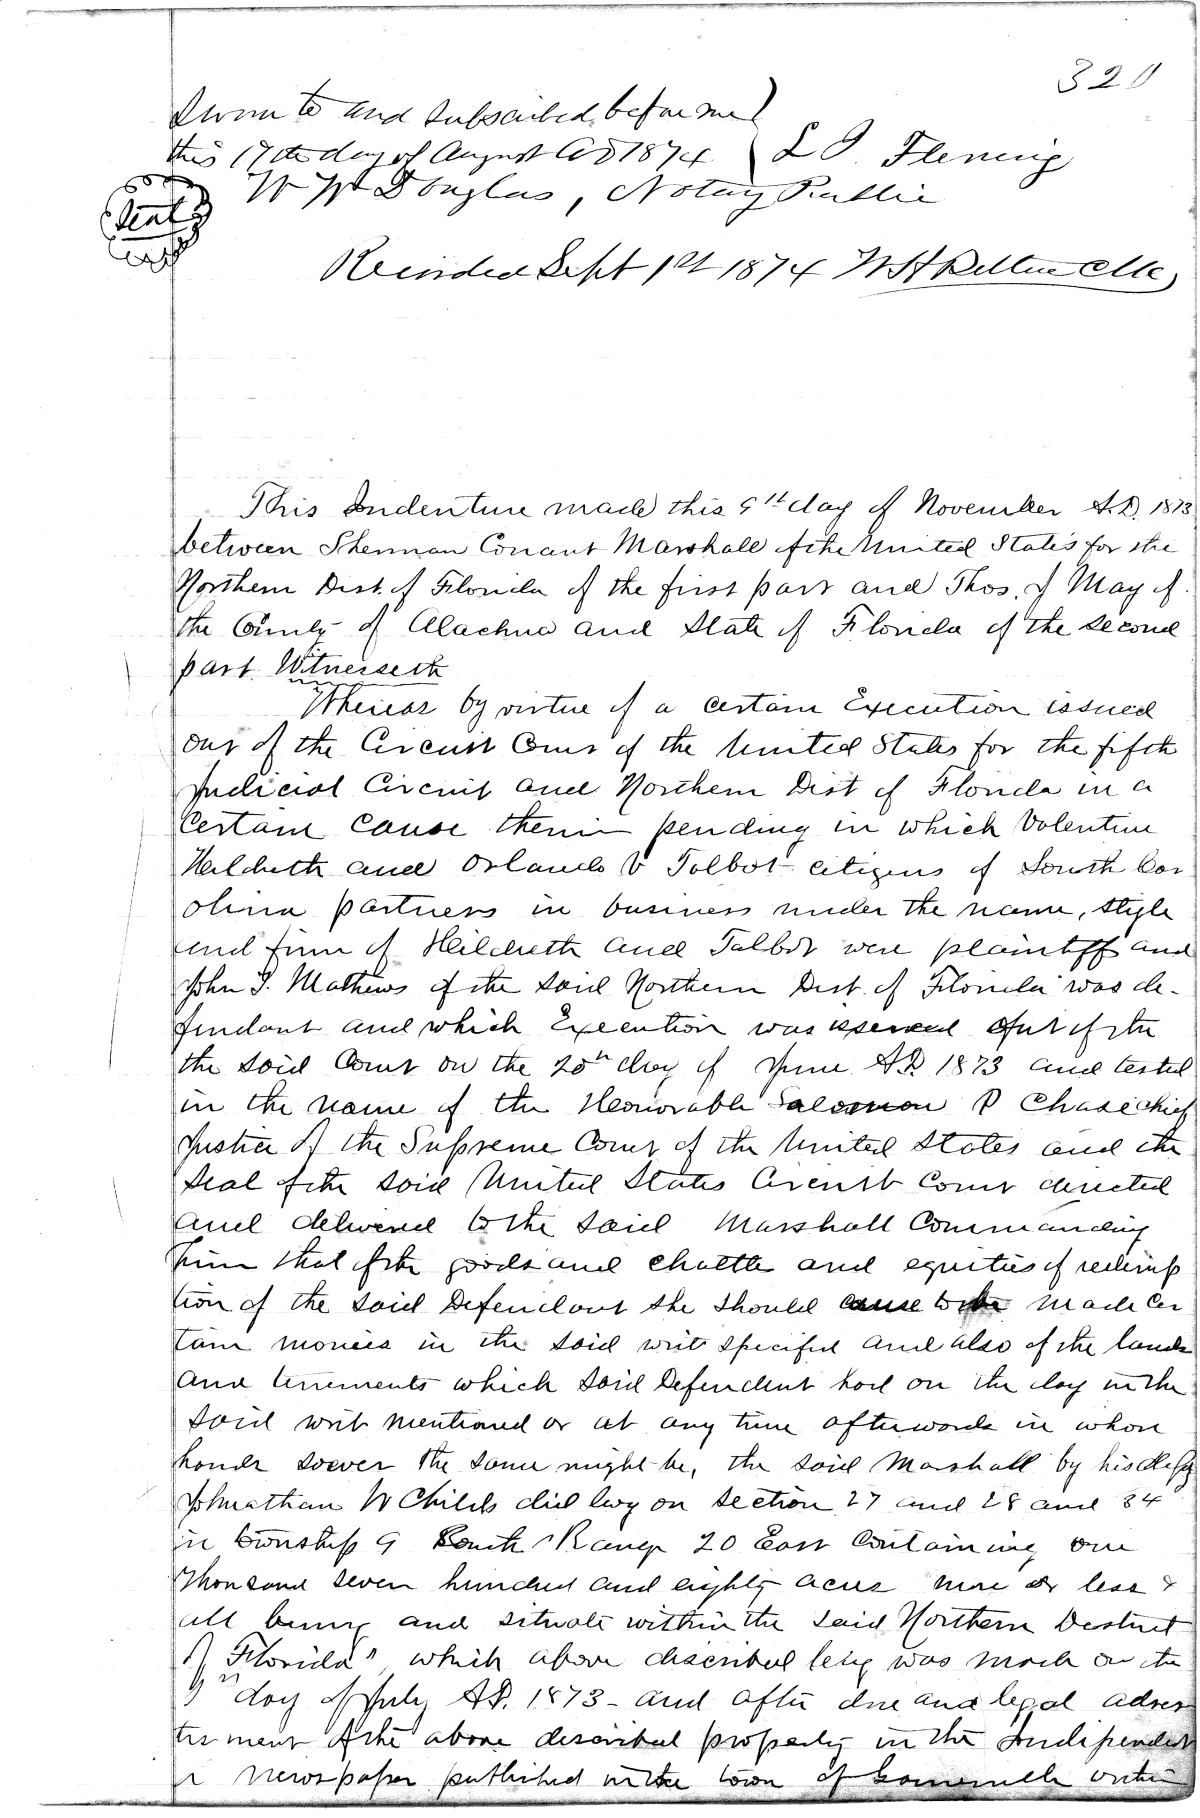 320
Sworn to and subscribed before me
this 17th day of August AD 1874 L I. Fleming
W W Douglas, Notary Public
Seal
Recorded Sept 1st 1874 W H Belton Clk
This Indenture made this 9th day of November A.D. 1873
between Sherman Conant Marshall of the United States for the
Northern Dist. of Florida of the first part and Thos. J May of
the County of Alachua and State of Florida of the second
part. Witnesseth
Whereas by virtue of a certain Execution issued
out of the Circuit Court of the United States for the fifth
Judicial Circuit and Northern Dist of Florida in a
Certain cause therein pending in which Valentine
Heildreth and Orlando V Talbot citizens of South Car
olina partners in business under the name, style
and firm of Heildreth and Talbot were plaintiff and
John I. Mathews of the said Northern Dist. of Florida was de-
fendant and which Execution was issued out of the
the said Court on the 20th day of June A.D. 1873 and tested
in the name of the Honorable Salomon P Chase chief
Justice of the Supreme Court of the United States and the
Seal of the said United States Circuit Court directed
and delivered to the said Marshall Commanding
him that of the goods and chattle and equities of redemp
tion of the said Defendant the should cause to be made Cer
tain monies in the said writ specified and also of the lands
and tenements which said Defendent had on the day in the
said writ mentioned or at any time afterwards in whose
hands soever the same might be, the said Marshall by his depty
Johnathan W Childs did levy on Section 27 and 28 and 34
in township 9 South Range 20 East Containing one
thousand seven hundred and eighty acres more or less &
all being and situate within the said Northern Destrict
of Florida" which above discribed levy was made on the
day of July A.D. 1873 - and after due and legal adver
tisment of the above discribed property in the Independent
a newspaper published in the town of Gainesville within